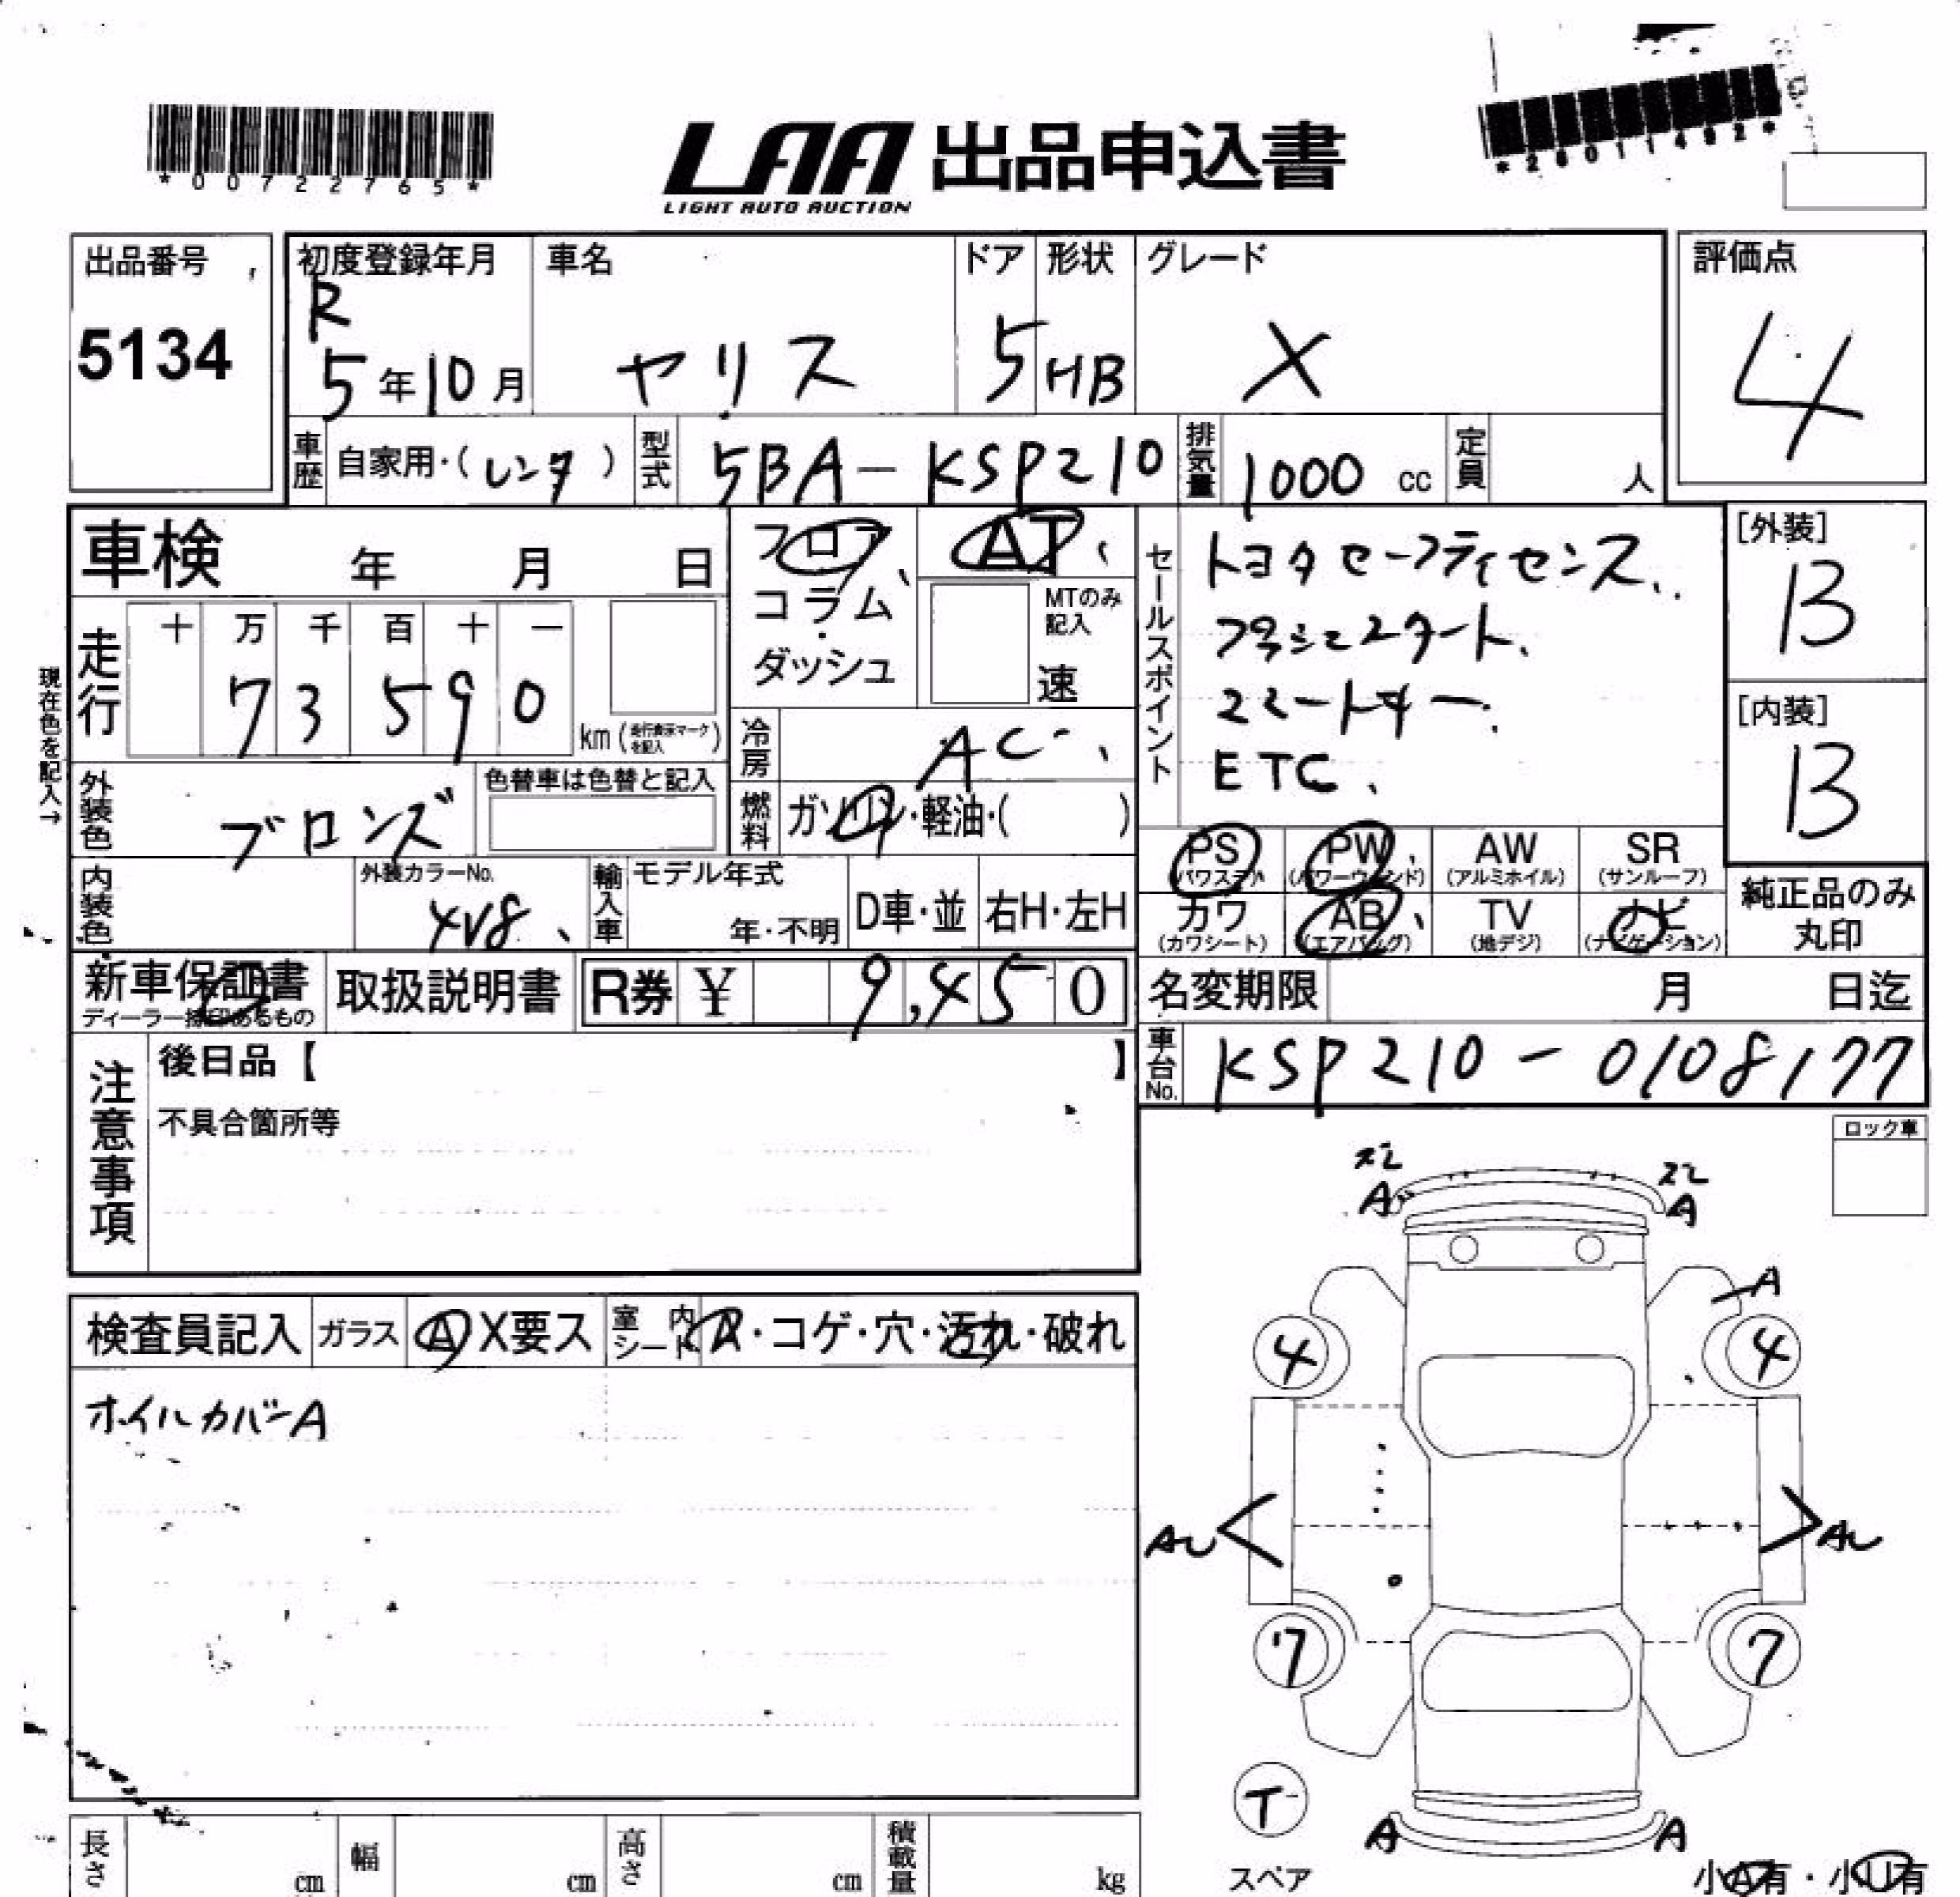 *00722765*
LAA 出品申込書
LIGHT AUTO AUCTION
*28011482*
出品番号
5134
初度登録年月
R
5年10月
車名
ヤリス
ドア
5
形状
HB
グレード
X
評価点
4
車歴 自家用・(レンタ)
型式 5BA-KSP210
排気量 1000 cc
定員 人
車検 年 月 日
フロア
コラム
・
ダッシュ
AT
MTのみ
記入
速
セールスポイント
トヨタセーフティセンス、
プッシュスタート、
スマートキー、
ETC、
[外装]
B
[内装]
B
現在色を記入→
走行
十 万 千 百 十 一
7 3 5 9 0
km(走行表示マークを記入)
冷房 AC
外装色 ブロンズ
色替車は色替と記入
燃料 ガソリン・軽油・( )
PS (パワステ)
PW (パワーウィンド)
AW (アルミホイル)
SR (サンルーフ)
カワ (カワシート)
AB (エアバッグ)
TV (地デジ)
ナビ (ナビゲーション)
純正品のみ
丸印
内装色
外装カラーNo.
4V8
輸入車
モデル年式
年・不明
D車・並
右H・左H
新車保証書
ディーラー捺印あるもの
取扱説明書
R券 ¥ 9,450
名変期限 月 日迄
車台No. KSP210-0108177
注意事項
後日品【 】
不具合箇所等
ロック車
スレ
A
スレ
A
A
4
4
AU
AU
7
7
T
スペア
A
A
小A有・小U有
検査員記入
ガラス A X要ス
室内シート A・コゲ・穴・汚れ・破れ
オイルカバーA
長さ cm
幅 cm
高さ cm
積載量 kg